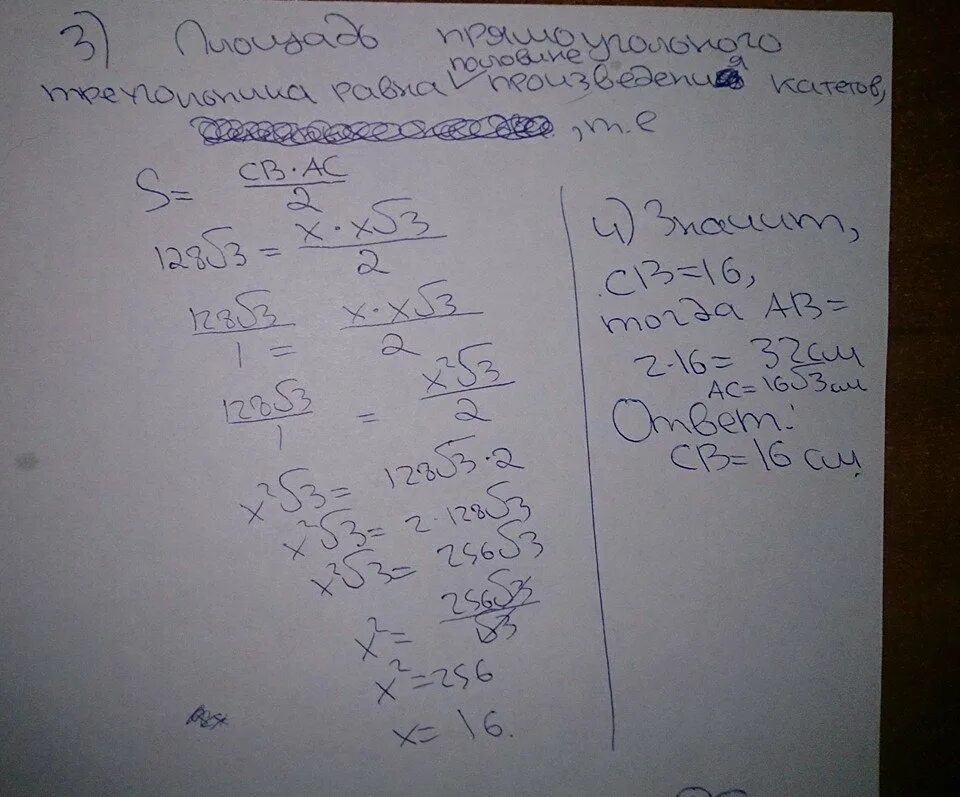 3) Площадь прямоугольного
половине
треугольника равна произведения катетов,
, т.е
S = CB·AC/2
128√3 = x·x√3/2
128√3/1 = x·x√3/2
128√3/1 = x²√3/2
x²√3 = 128√3·2
x²√3 = 2·128√3
x²√3 = 256√3
x² = 256√3/√3
x² = 256
x = 16.
4) Значит,
CB=16,
тогда AB=
2·16= 32см
AC=16√3см
Ответ:
CB=16 см.